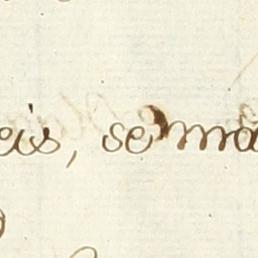 eis, se ma